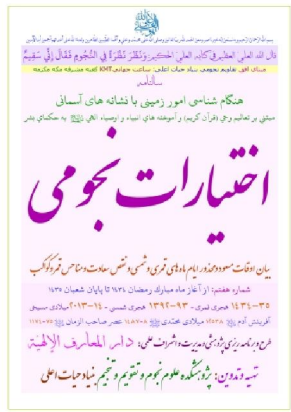 قال الله العلي العظيم في كتابه العلي الحكيم: وَنَظَرَ نَظْرَةً فِي النُّجُومِ فَقَالَ إِنِّي سَقِيمٌ
سالنامه
هنگام شناسی امور زمینی با نشانه های آسمانی
مبتنی بر تعالیم وحی (قرآن کریم) و آموخته های انبیاء و اوصیاء الهی به حکمای بشر
اختیارات نجومی
بیان اوقات مسعود و محذور ایام ماه های قمری و شمسی و نقص سعادت و مناحس قمر و کواکب
شماره هفتم: از آغاز ماه مبارک رمضان ۱۴۳۴ تا پایان شعبان ۱۴۳۵
۱۴۳۴-۳۵ هجری قمری - ۹۳-۱۳۹۲ هجری شمسی - ۱۴-۲۰۱۳ میلادی مسیحی
طرح و برنامه ریزی پژوهشی و مدیریت و اشراف علمی: دار المعارف الإلهية
تهیه و تدوین: پژوهشکده علوم نجوم و تقویم و تنجیم بنیاد حیات اعلی